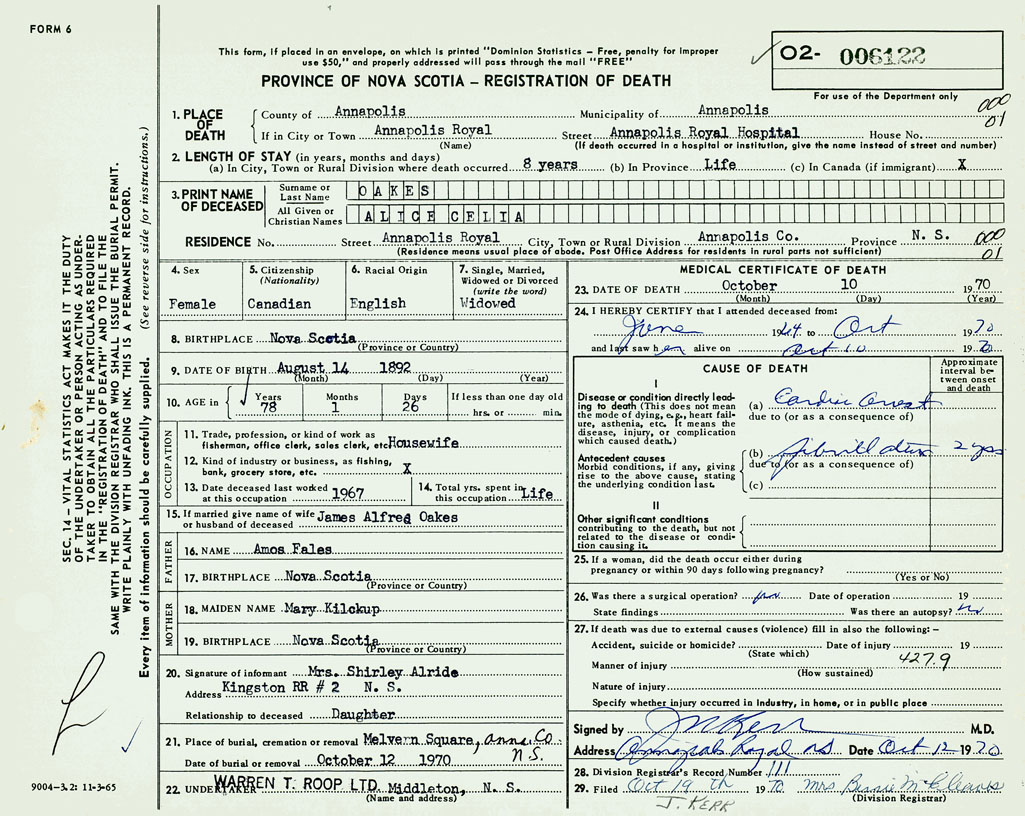 FORM 6
This form, if placed in an envelope, on which is printed "Dominion Statistics – Free, penalty for improper
use $50," and properly addressed will pass through the mail "FREE"
PROVINCE OF NOVA SCOTIA – REGISTRATION OF DEATH
O2- 006122
For use of the Department only
1. PLACE OF DEATH
County of Annapolis Municipality of Annapolis 000
If in City or Town Annapolis Royal Street Annapolis Royal Hospital House No. 01
(Name) (If death occurred in a hospital or institution, give the name instead of street and number)
2. LENGTH OF STAY (in years, months and days)
(a) In City, Town or Rural Division where death occurred 8 years (b) In Province Life (c) In Canada (if immigrant) X
3. PRINT NAME OF DECEASED
Surname or Last Name OAKES
All Given or Christian Names ALICE CELIA
RESIDENCE No. Street Annapolis Royal City, Town or Rural Division Annapolis Co. Province N. S. 000
(Residence means usual place of abode. Post Office Address for residents in rural parts not sufficient) 01
4. Sex
Female
5. Citizenship
(Nationality)
Canadian
6. Racial Origin
English
7. Single, Married,
Widowed or Divorced
(write the word)
Widowed
8. BIRTHPLACE Nova Scotia
(Province or Country)
9. DATE OF BIRTH August 14 1892
(Month) (Day) (Year)
10. AGE in Years 78 Months 1 Days 26 If less than one day old
hrs. or min.
OCCUPATION
11. Trade, profession, or kind of work as
fisherman, office clerk, sales clerk, etc. Housewife
12. Kind of industry or business, as fishing,
bank, grocery store, etc. X
13. Date deceased last worked
at this occupation 1967
14. Total yrs. spent in
this occupation Life
15. If married give name of wife
or husband of deceased James Alfred Oakes
FATHER
16. NAME Amos Fales
17. BIRTHPLACE Nova Scotia
(Province or Country)
MOTHER
18. MAIDEN NAME Mary Kilckup
19. BIRTHPLACE Nova Scotia
(Province or Country)
20. Signature of informant Mrs. Shirley Alride
Address Kingston RR # 2 N. S.
Relationship to deceased Daughter
21. Place of burial, cremation or removal Melvern Square, Anna. Co.
N.S.
Date of burial or removal October 12 1970
22. UNDERTAKER WARREN T. ROOP LTD. Middleton, N. S.
(Name and address)
MEDICAL CERTIFICATE OF DEATH
23. DATE OF DEATH October 10 1970
(Month) (Day) (Year)
24. I HEREBY CERTIFY that I attended deceased from:
June 1964 to Oct 1970
and last saw her alive on Oct 10 1970
CAUSE OF DEATH
Approximate
interval be-
tween onset
and death
I
Disease or condition directly lead-
ing to death (This does not
mean the mode of dying, e.g., heart fail-
ure, asthenia, etc. It means the
disease, injury, or complication
which caused death.)
(a) Cardiac arrest
due to (or as a consequence of)
Antecedent causes
Morbid conditions, if any, giving
rise to the above cause, stating
the underlying condition last.
(b) fibrillation 2 yrs
due to (or as a consequence of)
(c)
II
Other significant conditions
contributing to the death, but not
related to the disease or condi-
tion causing it.
25. If a woman, did the death occur either during
pregnancy or within 90 days following pregnancy?
(Yes or No)
26. Was there a surgical operation? no Date of operation 19
State findings Was there an autopsy? no
27. If death was due to external causes (violence) fill in also the following: –
Accident, suicide or homicide? Date of injury 19
(State which) 427.9
Manner of injury
(How sustained)
Nature of injury
Specify whether injury occurred in Industry, in home, or in public place
Signed by J M Kerr M.D.
Address Annapolis Royal NS Date Oct 12 1970
28. Division Registrar's Record Number 111
29. Filed Oct 19 th 1970 Mrs
(Division Registrar)
J. KERR
SEC. 14 – VITAL STATISTICS ACT MAKES IT THE DUTY
OF THE UNDERTAKER OR PERSON ACTING AS UNDER-
TAKER TO OBTAIN ALL THE PARTICULARS REQUIRED
IN THE "REGISTRATION OF DEATH" AND TO FILE THE
SAME WITH THE DIVISION REGISTRAR WHO SHALL ISSUE THE BURIAL PERMIT.
WRITE PLAINLY WITH UNFADING INK. THIS IS A PERMANENT RECORD.
Every item of information should be carefully supplied. (See reverse side for instructions.)
9004-3.2: 11-3-65